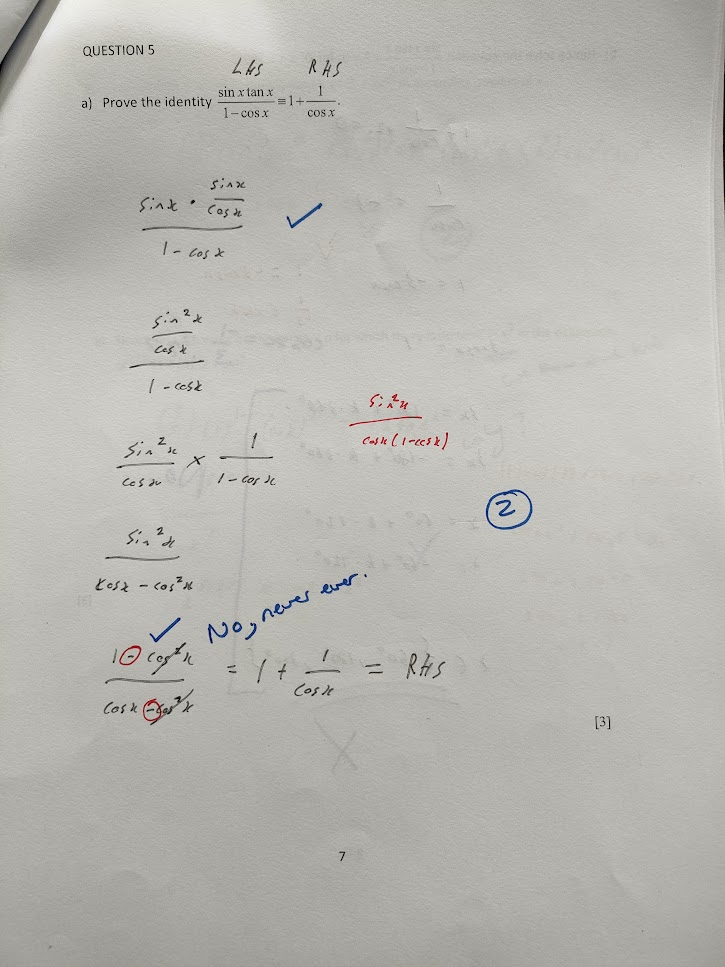 QUESTION 5
LHS RHS
a) Prove the identity (sin x tan x)/(1 − cos x) ≡ 1 + 1/(cos x).
(sin x · (sin x)/(cos x))/(1 − cos x) ✓
((sin²x)/(cos x))/(1 − cos x)
(sin²x)/(cos x (1 − cos x))
(sin²x)/(cos x) × 1/(1 − cos x)
2
(sin²x)/(cos x − cos²x)
✓ No, never ever.
(1 − cos²x)/(cos x − cos²x) = 1 + 1/(cos x) = RHS
[3]
7